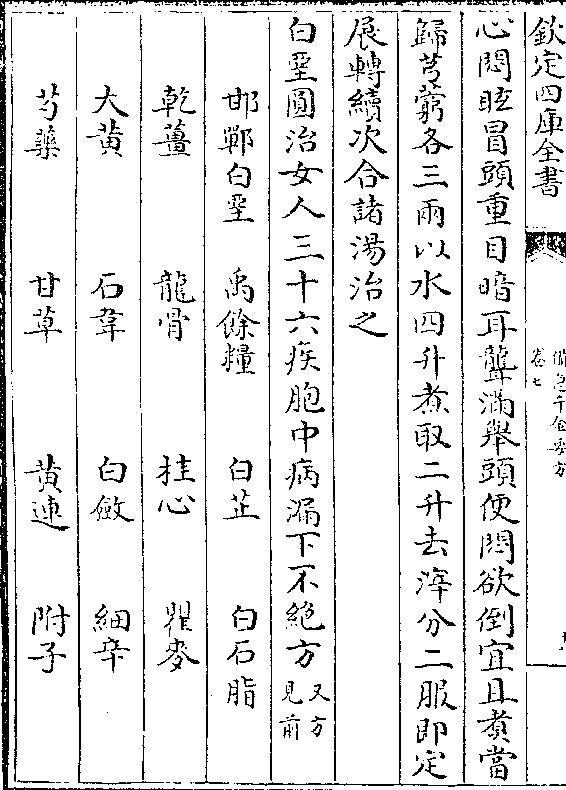 欽定四庫全書
備急千金要方
卷七
心悶眩冒頭重目暗耳聾滿舉頭便悶欲倒宜且煮當
歸芎藭各三兩以水四升煮取二升去滓分二服即定
展轉續次合諸湯治之
白堊圓治女人三十六疾胞中病漏下不絕方又方見前
邯鄲白堊 禹餘糧 白芷 白石脂
乾薑 龍骨 桂心 瞿麥
大黃 石韋 白斂 細辛
芍藥 甘草 黃連 附子